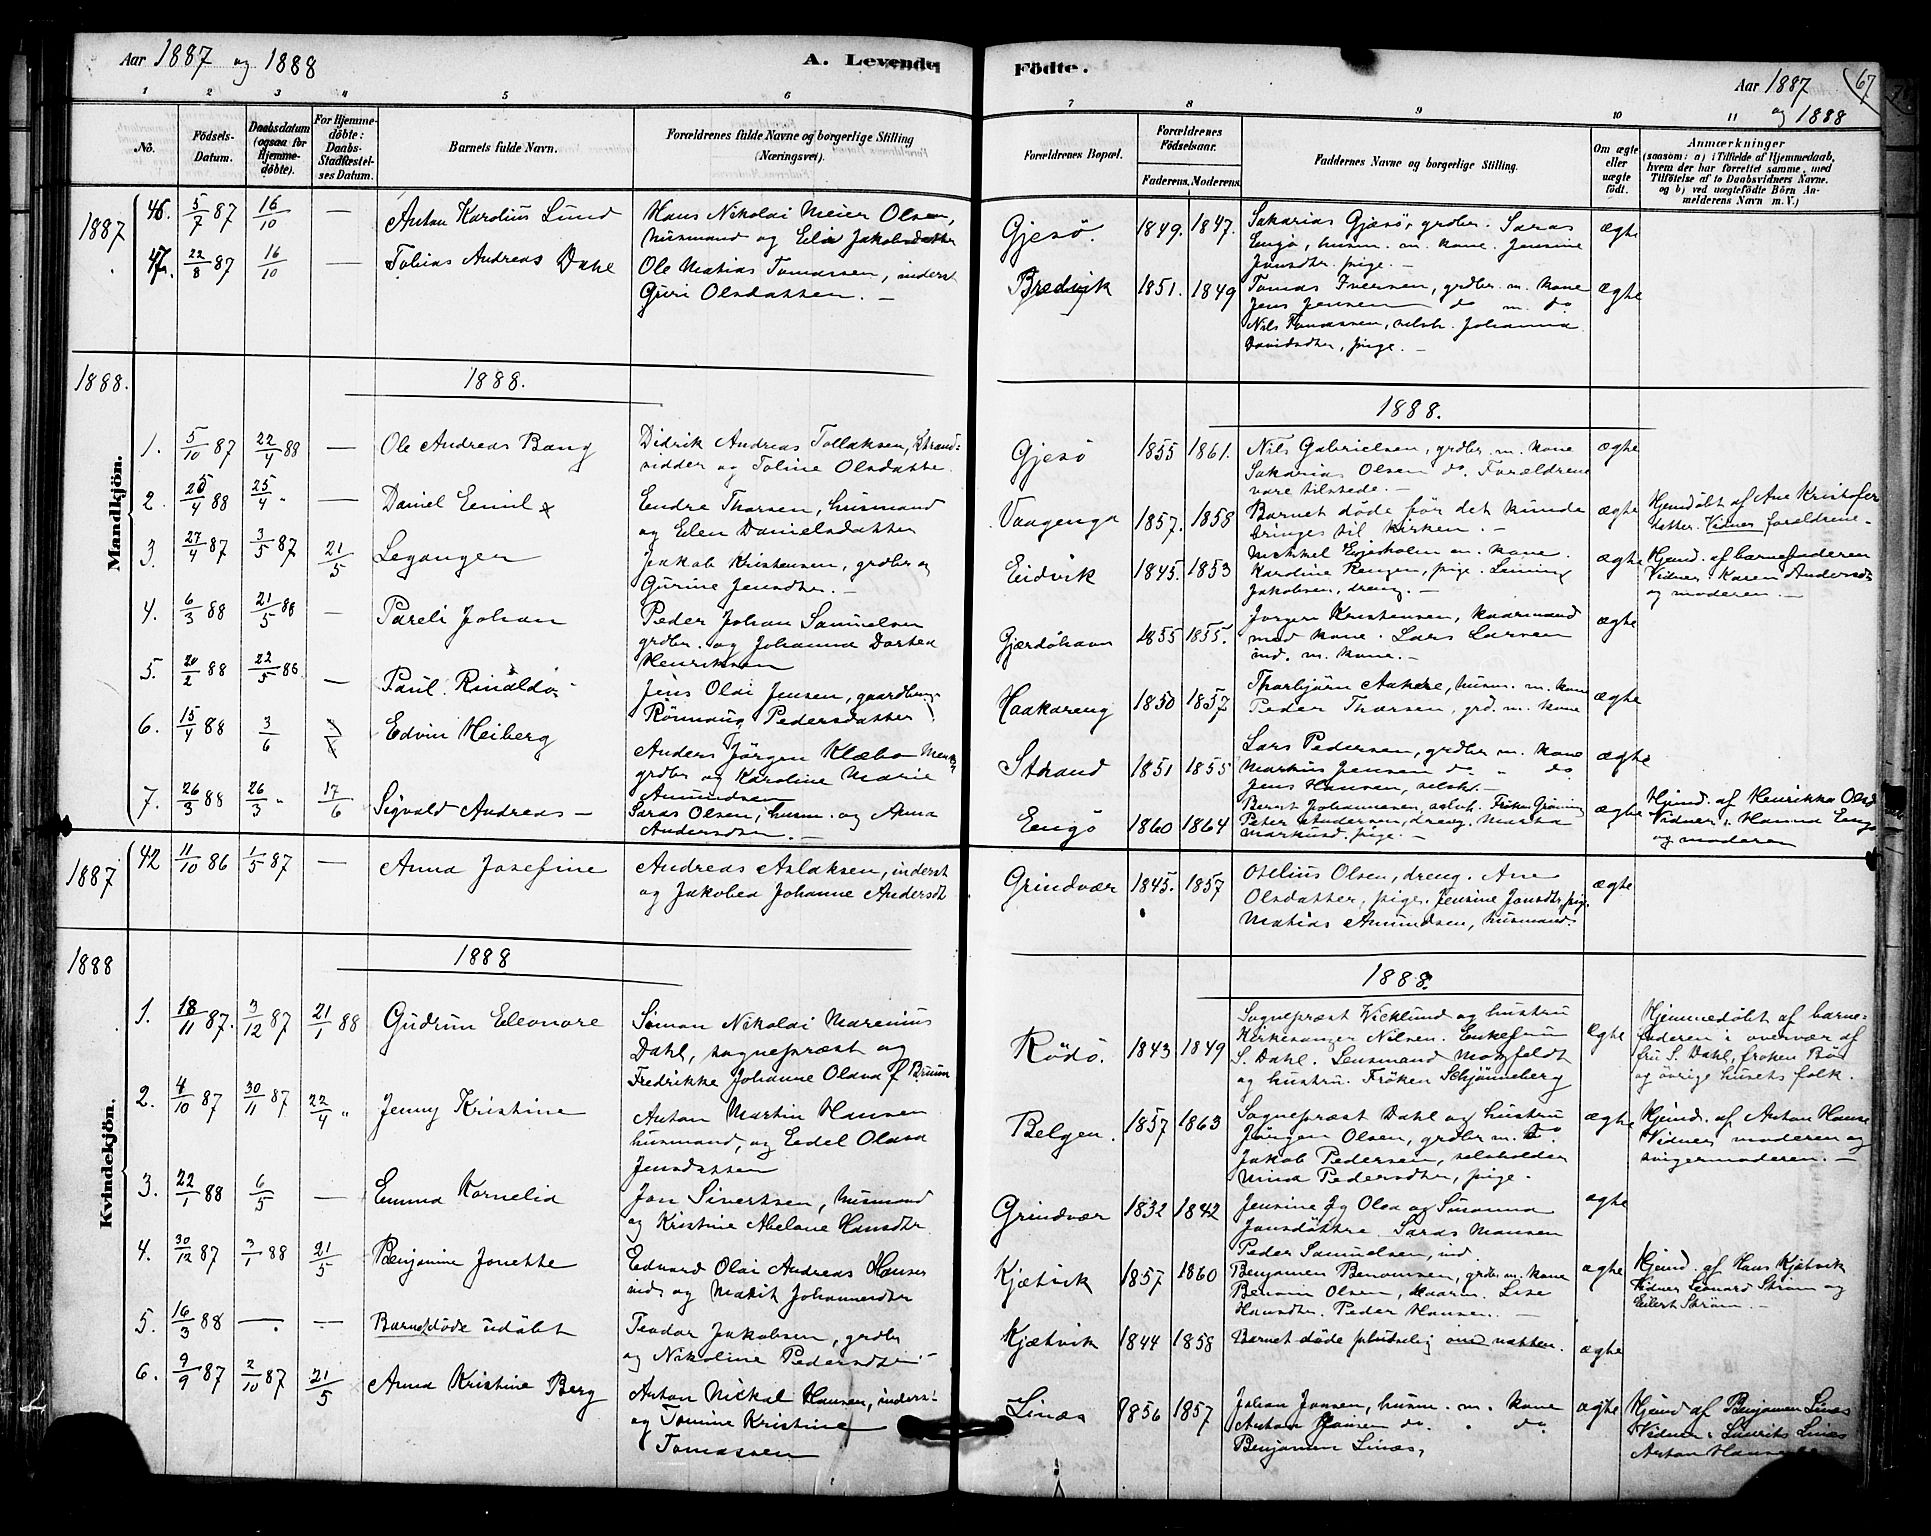 Aar 1887 og 1888
A. Levende Födte.
Aar 1887 og 1888
67
1 2 3 4 5 6 7 8 9 10 11
No.
Födsels-Datum.
Daabsdatum (ogsaa for Hjemme-döbte).
For Hjemme-döbte: Daabs-Stadfæstel-ses Datum.
Barnets fulde Navn.
Forældrenes fulde Navne og borgerlige Stilling (Næringsvei).
Forældrenes Bopæl.
Forældrenes Födselsaar.
Faderens. Moderens.
Faddernes Navne og borgerlige Stilling.
Om ægte eller uægte födt.
Anmærkninger
(saasom: a) i Tilfælde af Hjemmedaab, hvem der har forrettet samme, med Tilföielse af to Daabsvidners Navne, og b) ved uægtefödte Börn An-melderens Navn m. V.)
1887
46. 5/7 87 16/10 — Anton Karolius Lund
Hans Nikolai Meier Olsen,
husmand og Elia Jakobsdatter
Gjesö. 1849. 1847.
Sakarias Gjesö, grdbr. Saras
Engö, husm. m. kone. Jensine
Jonsdtr. pige. —
ægte
47. 22/8 87 16/10 — Tobias Andreas Dahl
Ole Matias Tomassen, inderst
Guri Olsdatter. —
Bredvik 1851. 1849
Tomas Iversen, grdbr. m. kone
Jens Jensen do m. do
Nils Tomassen, selvst. Johanna
Davidsdtr, pige. —
ægte
1888.
1888.
1888.
Mandkjön.
1. 5/10 87 22/4 88 — Ole Andreas Bang
Didrik Andreas Tollaksen, Strand-
sidder og Toline Olsdatter
Gjesö 1855 1861.
Nils Gabrielsen, grdbr. m. kone
Sakarias Olsen do. Forældrene
vare tilstede. —
ægte
2. 25/4 88 25/4 " — Daniel Emil
Endre Thorsen, husmand
og Elen Danielsdatter
Vaagenga 1857. 1858
Barnet døde før det kunde
bringes til kirken. —
ægte
Hjemdøbt af Ane Kristofer
datter. Vidner forældrene —
3. 27/4 87 3/5 87 21/5 Legangen
Jakob Kristensen, grdbr og
Gurine Jensdtr. —
Eidvik 1845. 1853
Karoline Rengen, pige.
Jakobsen, dreng. —
ægte
Hjemd. af barnefaderen
Vidner: Karen Andersdt
og moderen. —
4. 6/3 88 21/5 88 — Pareli Johan
Peder Johan Samuelsen
grdbr. og Johanna Dortea
Henriksen
Gjærdöhavn 1855 1855.
Jörgen Kristensen, kaarmand
med kone. Lars Larsen
ind. m. kone. —
ægte
5. 20/2 88 22/5 88 — Paul Rinaldo
Jens Olai Jensen, gaardbruger
Rönnaug Pedersdatter
Haakareng 1850 1857
Thorbjörn Aakre, husm. m. kone
Peder Thorsen, grd. m. kone
ægte
6. 15/4 88 3/6 Edvin Heiberg
Anders Jörgen Klæbo
grdbr og Karoline Marie
Amundsen
Strand 1851 1855
Lars Pedersen, grdbr m. kone
Markus Jensen do " do
Jens Hansen, selvst. —
ægte
7. 26/3 88 26/3 " 17/6 Sigvald Andreas —
Saras Olsen, husm. og Anna
Andersdtr. —
Engö 1860 1864
Bernt Johannesen, selvst.
Peter Andersen, dreng. Marta
Markusd. pige. —
ægte
Hjemd. af Henrikka Olsd
Vidner: Hanna Engö
og moderen
1887
42 11/10 86 1/5 87 — Anna Josefine
Andreas Aslaksen, inderst
og Jakobea Johanne Andersdt
Grindvær 1845. 1857
Otelius Olsen, dreng. Ane
Olsdatter, pige. Jensine Jonsdtr, pig.
Matias Amundsen, husmand.
ægte
1888
1888
1888.
Kvindekjön.
1. 18/11 87. 3/12 87 21/1 88 Gudrun Eleonore
Simon Nikolai Marenius
Dahl, sognepræst og
Fredrikke Johanne Olava f. Bruun
Rödö. 1843 1849
Sognepræst Wicklund og hustru
Kirkesanger Nilsen. Enkefru
S. Dahl. Lensmand Motzfeldt
og hustru. Fröken Schjönneberg
ægte
Hjemmedøbt af barne-
faderen i overvær af
fru S. Dahl, frøken Bö
og övrige husets folk.
2. 4/10 87 30/11 87 22/4 " Jenny Kristine
Anton Martin Hansen
husmand, og Edel Olava
Jensdatter
Belgen. 1857 1863
Sognepræst Dahl og hustru
Jörgen Olsen, grdbr m. do.
Jakob Pedersen, selvholder
Mina Pedersdtr, pige.
ægte
Hjemd. af Anton Hanse
Vidner moderen og
svigermoderen. —
3. 22/1 88 6/5 — Emma Kornelia
Jon Sivertsen, husmand
og Kristine Abelone Hansdtr
Grindvær 1832 1842
Jensine og Olea og Susanna
Jonsdöttre. Saras Monsen
Peder Samuelsen, ind.
ægte
4. 30/12 87 3/1 88 21/5 Benjamine Jonette
Edvard Olai Andreas Hansen
ind. og Marit Johannesdtr
Kjætvik 1857 1860
Benjamin Benonisen, grdbr. m. kone
Benoni Olsen, kaarm. Lise
Hansdtr. Peder Hansen. —
ægte
Hjemd. af Hans Kjætvik
Vidner Leonard Ström og
Eilert Ström. —
5. 16/3 88 — — Barnet døde udøbt
Teodor Jakobsen, grdbr
og Nikoline Pedersdtr. —
Kjætvik 1844 1858
Barnet døde pludselig om natten.
ægte
6. 9/9 87 2/10 87 21/5 Anna Kristine Berg
Anton Mikal Hansen, inderst
og Tomine Kristine
Tomassen
Linæs 1856 1857
Johan Jonsen, husm. m. kone
Anton Hansen do. " do.
Benjamin Linæs,
ægte
Hjemd af Benjamin Linæs
Vidner: Laurits Linæs
Anton Hanse